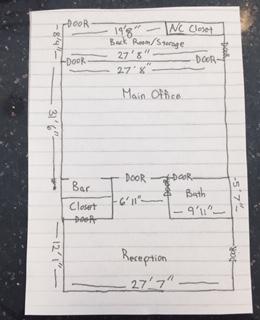 DOOR
19'8"
A/C Closet
Back Room/Storage
8'4"
27'8"
DOOR
DOOR
DOOR
27'8"
Main Office
31'6"
DOOR
DOOR
Bar
DOOR
Bath
5'7"
Closet
6'11"
9'11"
DOOR
12'1"
Reception
DOOR
27'7"